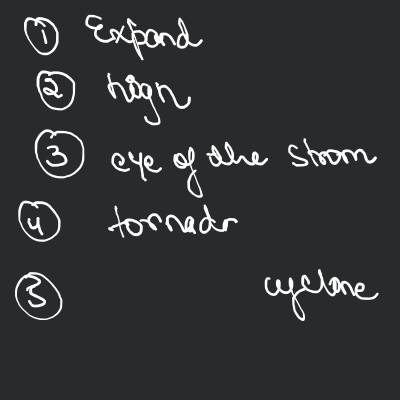 ① Expand
② hign
③ eye of the strom
④ tornadr
⑤ cyclone